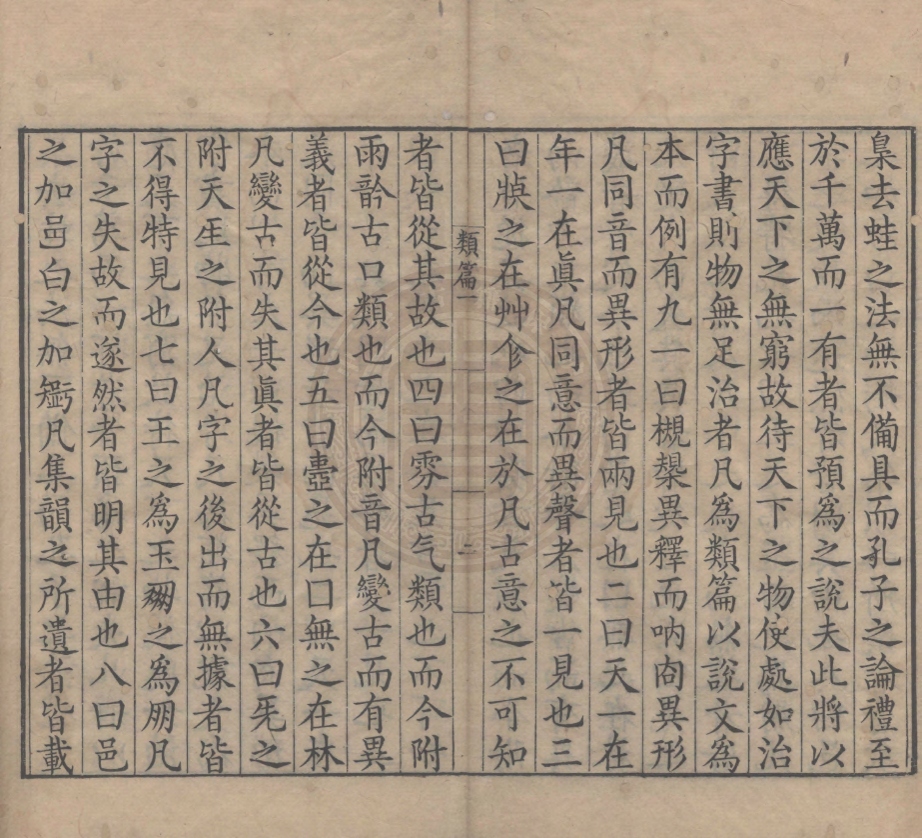 梟去蛙之法無不備具而孔子之論禮至
於千萬而一有者皆預爲之說夫此將以
應天下之無窮故待天下之物使處如治
字書則物無足治者凡爲類篇以說文爲
本而例有九一曰槻槼異釋而吶㕯異形
凡同音而異形者皆兩見也二曰天一在
年一在眞凡同意而異聲者皆一見也三
曰之在艸之在於凡古意之不可知
類篇一
二
者皆從其故也四曰雰古气類也而今附
雨䶭古口類也而今附音凡變古而有異
義者皆從今也五曰壷之在口無之在林
凡變古而失其眞者皆從古也六曰旡之
附天之附人凡字之後出而無據者皆
不得特見也七曰王之爲玉之爲朋凡
字之失故而遂然者皆明其由也八曰邑
之加邑白之加凡集韻之所遺者皆載